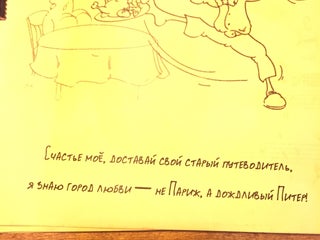 Счастье моё, доставай свой старый путеводитель,
я знаю город любви — не Париж, а дождливый Питер!